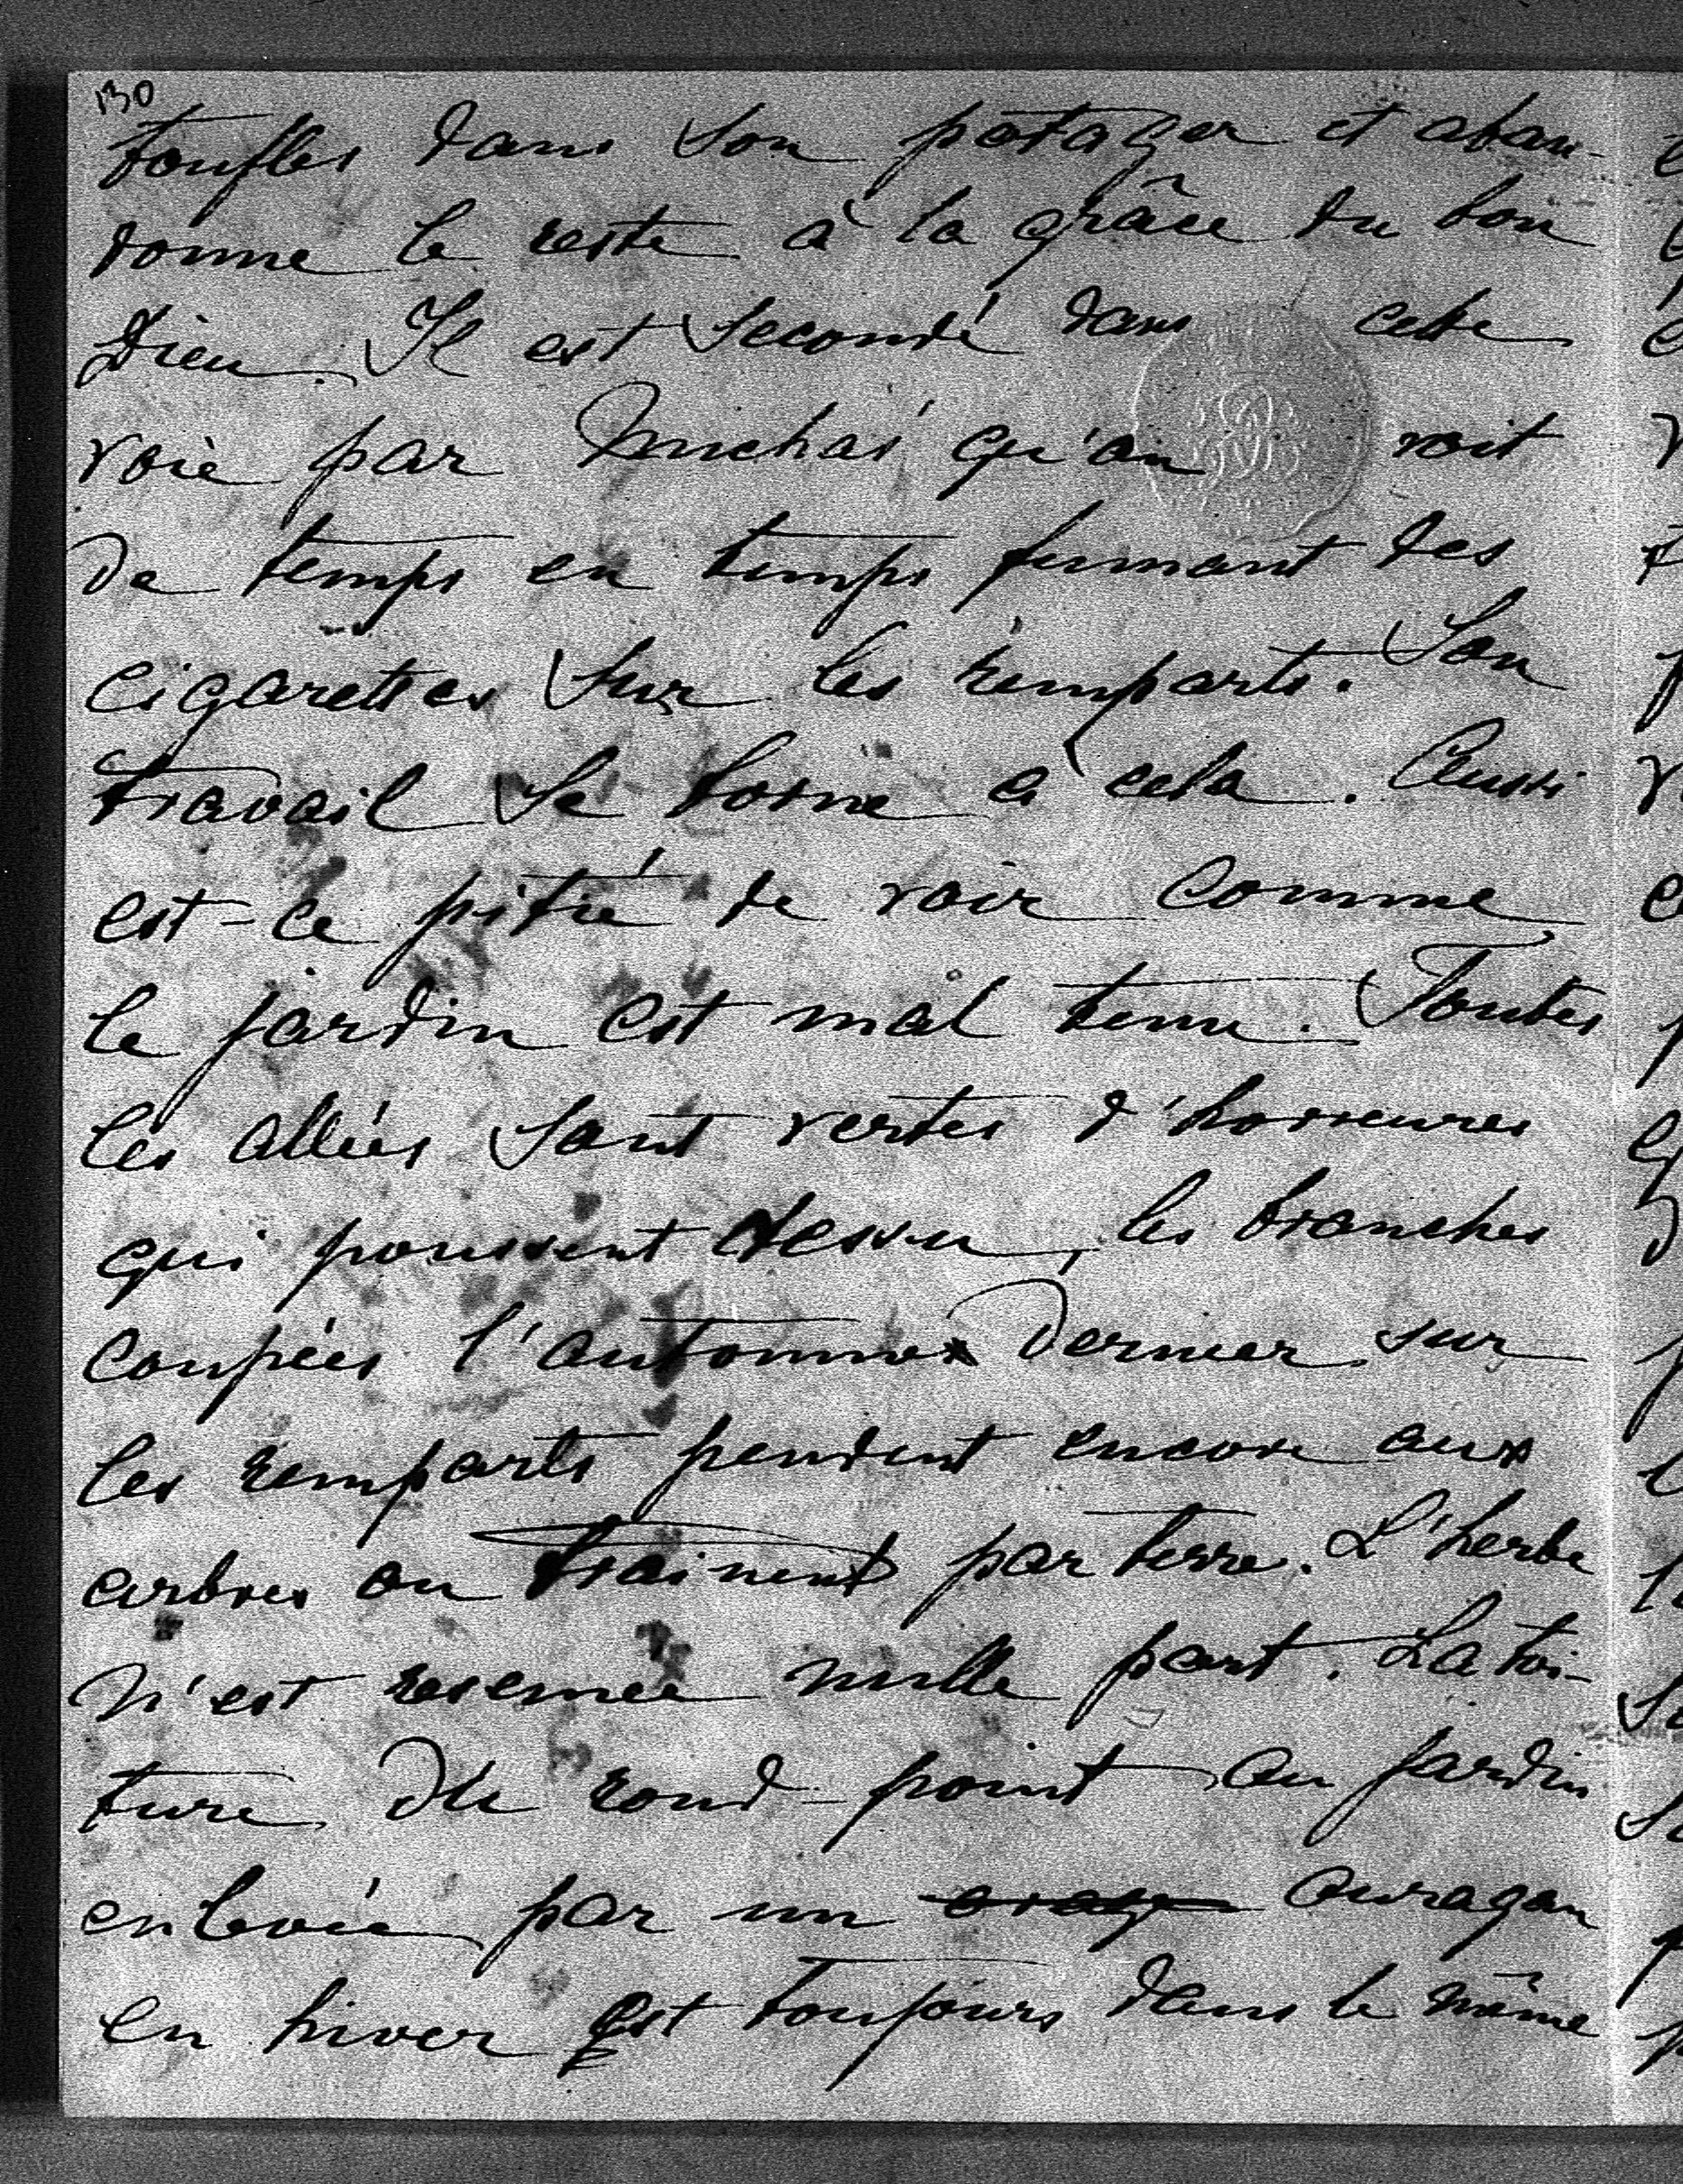 130
touffes dans son potager et aban-
donne le reste à la grâce du bon
Dieu. Il est secondé dans cette
voie par Michaś qu'on voit
de temps en temps fumant des
cigarettes sur les remparts. Son
travail se borne à cela. Aussi
est-ce pitié de voir comme
le jardin est mal tenu. Toutes
les allées sont vertes d'horreures
qui poussent dessu, les branches
coupées l'automne dernier sur
les remparts pendent encore aux
arbres ou trainent par terre. L'herbe
n'est resemée nulle part. La toi-
ture du rond-point au jardin
enlevée par un ouragan
en hiver est toujours dans le même